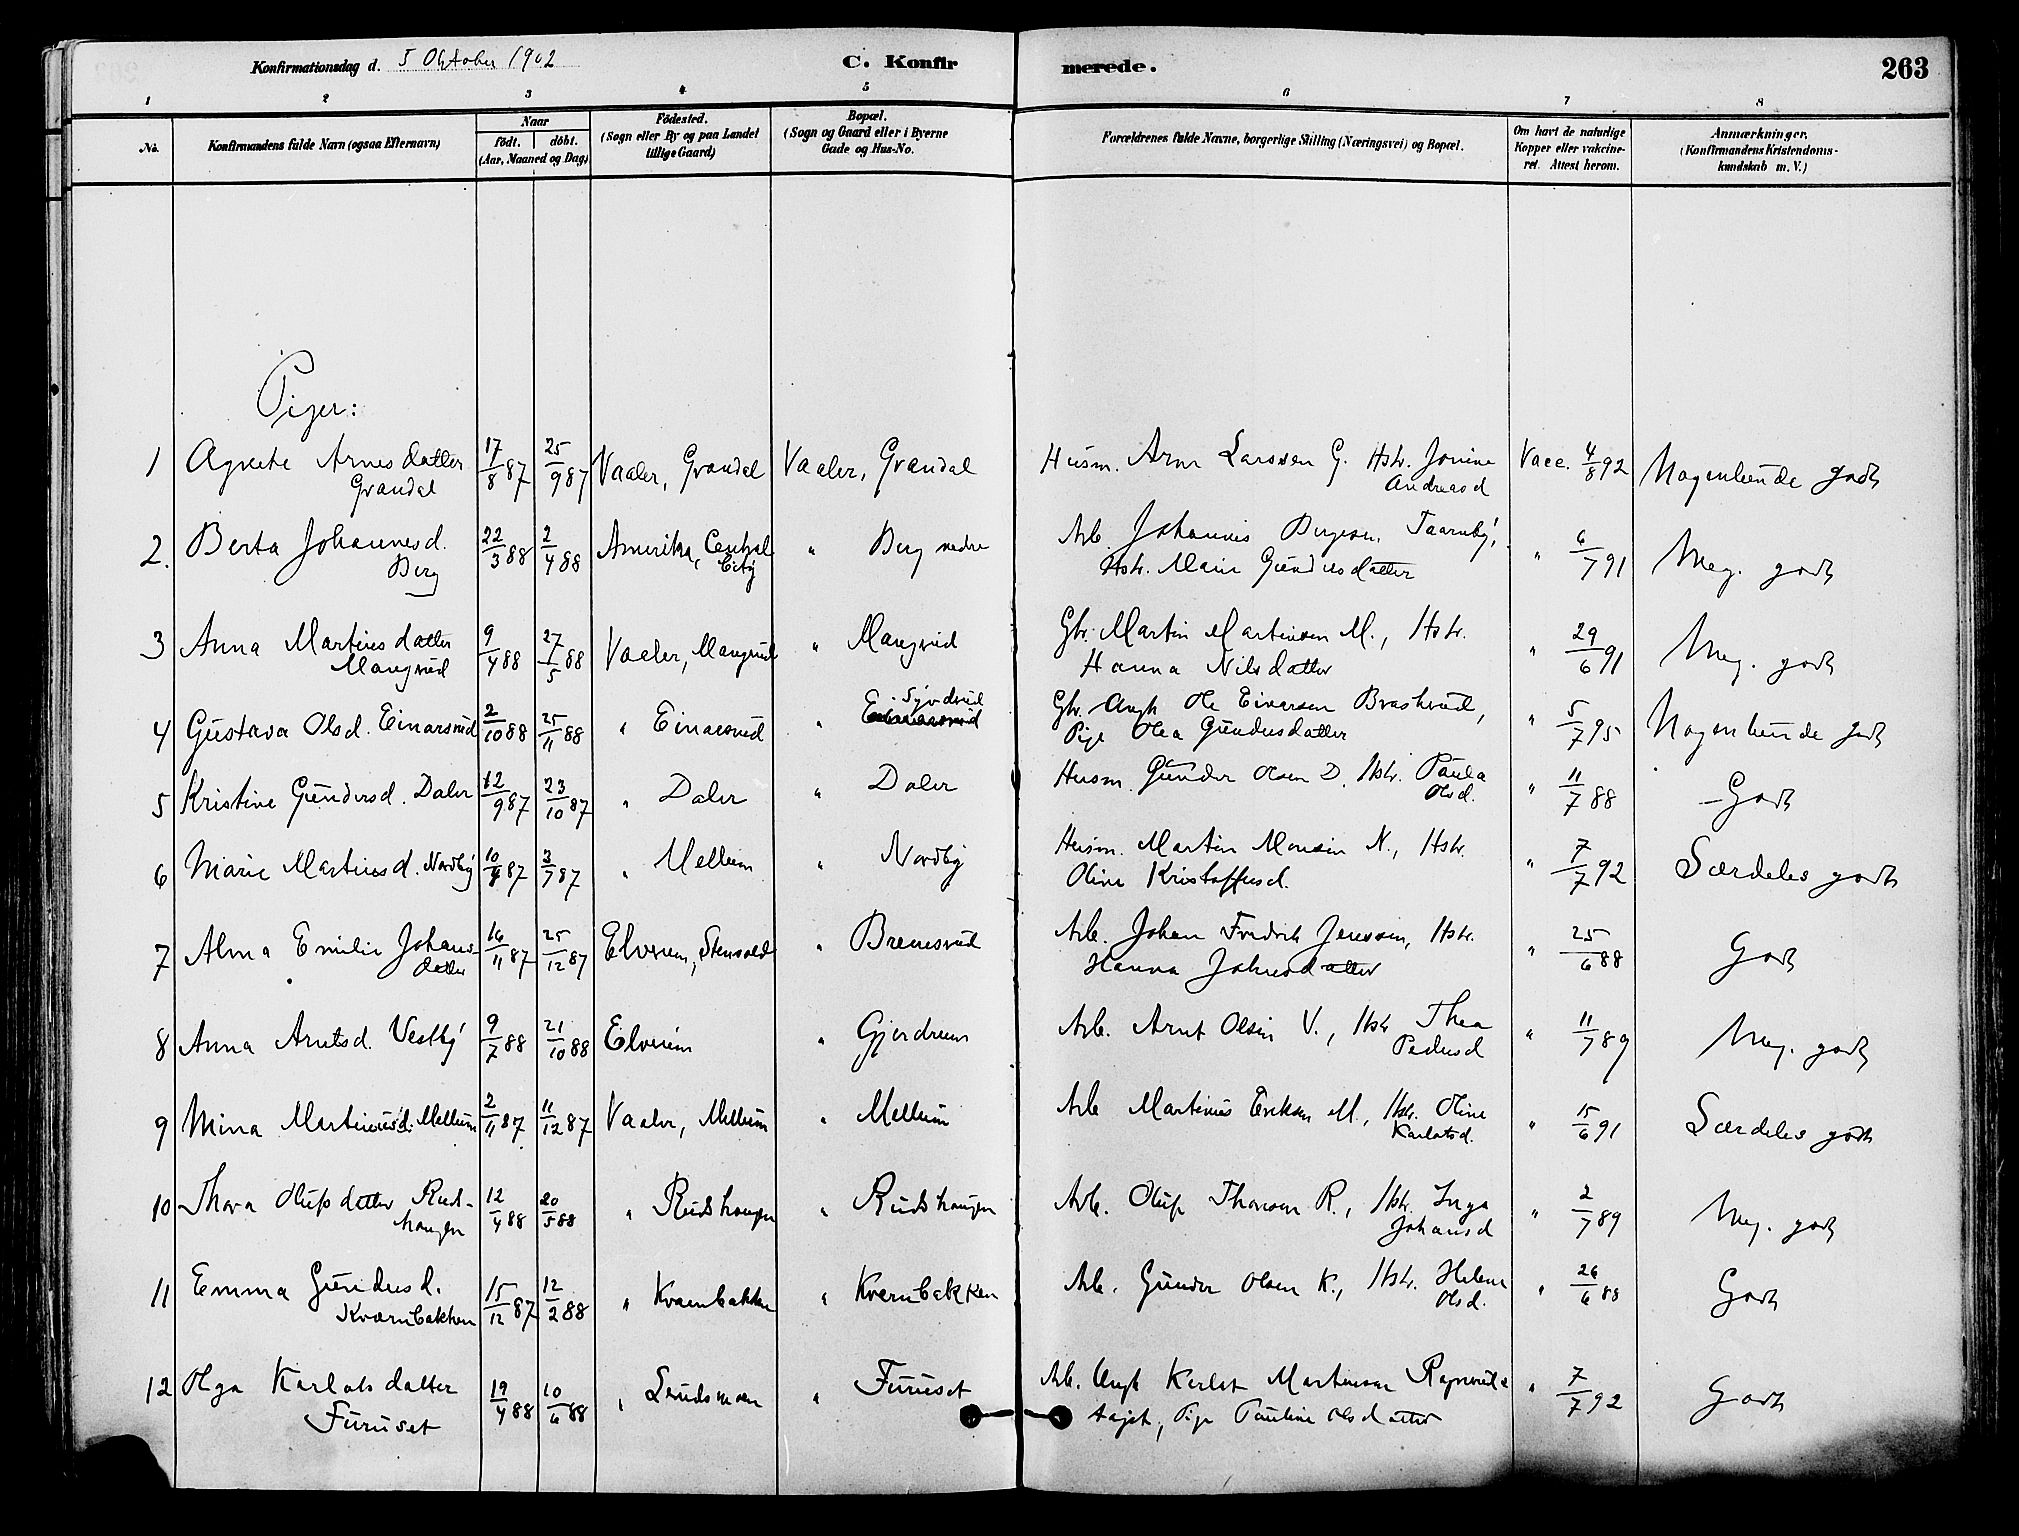 Konfirmationsdag d. 5 Oktober 1902
C. Konfirmerede.
263
1 2 3 4 5 6 7 8
No.
Konfirmandens fulde Navn (ogsaa Efternavn)
Naar
födt. döbt.
(Aar, Maaned og Dag)
Födested.
(Sogn eller By og paa Landet
tillige Gaard)
Bopæl.
(Sogn og Gaard eller i Byerne
Gade og Hus-No.
Forældrenes fulde Navne, borgerlige Stilling (Næringsvei) og Bopæl.
Om havt de naturlige
Kopper eller vakcine-
ret. Attest herom.
Anmærkninger.
(Konfirmandens Kristendoms-
kundskab m. V.)
Piger:
1 Agnete Arnesdatter 17/8 87 25/9 87 Vaaler, Grandal Vaaler, Grandal Husm. Arne Larssen G. Hstr. Jonine Vacc. 4/8 92 Nogenlunde godt
Grandal Andreasd
2. Berta Johannesd. 22/3 88 2/4 88 Amerika, Central " Berg nedre Arb. Johannes Bergesen Taarnby, " 6/7 91 Meg. godt
Berg City Hstr. Marie Gundersdatter
3 Anna Martinsdatter 9/4 88 27/5 88 Vaaler, Mangrud " Mangrud Gbr. Martin Martinsen M., Hstr. " 29/6 91 Meg. godt
Mangrud Hanna Nilsdatter
Syvdrud
4 Gustava Olsd. Einarsrud 2/10 88 25/11 88 " Einarsrud " Einarsrud Gbr. Ungk Ole Einarsen Braskerud, " 5/7 95 Nogenlunde godt
Pige Olea Gundersdatter
5 Kristine Gundersd. Daler 12/9 87 23/10 87 " Daler " Daler Husm. Gunder Olsen D. Hstr. Paula " 11/7 88 Godt
Olsd.
6 Marie Martinsd. Nordby 10/ 87 3/7 87 " Mellem " Nordby Husm. Martin Monsen N., Hstr. " 7/7 92 Særdeles godt
Oline Kristoffersd.
7 Alma Emilie Johans- 16/11 87 25/12 87 Elverum, " Brenesrud Arb. Johan Fredrik Jenssen, Hstr. " 25/6 88 Godt
datter Hanna Johnsdatter
8 Anna Arntsd. Vestby 9/7 88 21/10 88 Elverum " Gjerdrum Arb. Arnt Olsen V., Hstr Thea " 11/7 89 Meg. godt
Pedersd
9 Mina Martinusd. Mellem 2/11 87 11/12 87 Vaaler, Mellem " Mellem Arb Martinus Eriksen M., Hstr. Oline " 15/6 91 Særdeles godt
Karlotsd.
10 Thora Olufsdatter Ruds- 12/4 88 20/5 88 " Rudshaugen " Rudshaugen Arb. Oluf Thoresen R., Hstr. Inga " 2/7 89 Meg. godt
haugen Johansd
11 Emma Gundersd. 15/12 87 12/2 88 " Kværnbakken " Kværnbakken Arb. Gunder Olsen K., Hstr. Helene " 26/6 88 Godt
Kværnbakken Olsd.
12 Olga Karlotsdatter 19/4 88 10/6 88 " " Furuset Arb. Ungk Karlot Martinsen " 7/7 92 Godt
Furuset Pige Pauline Olsdatter